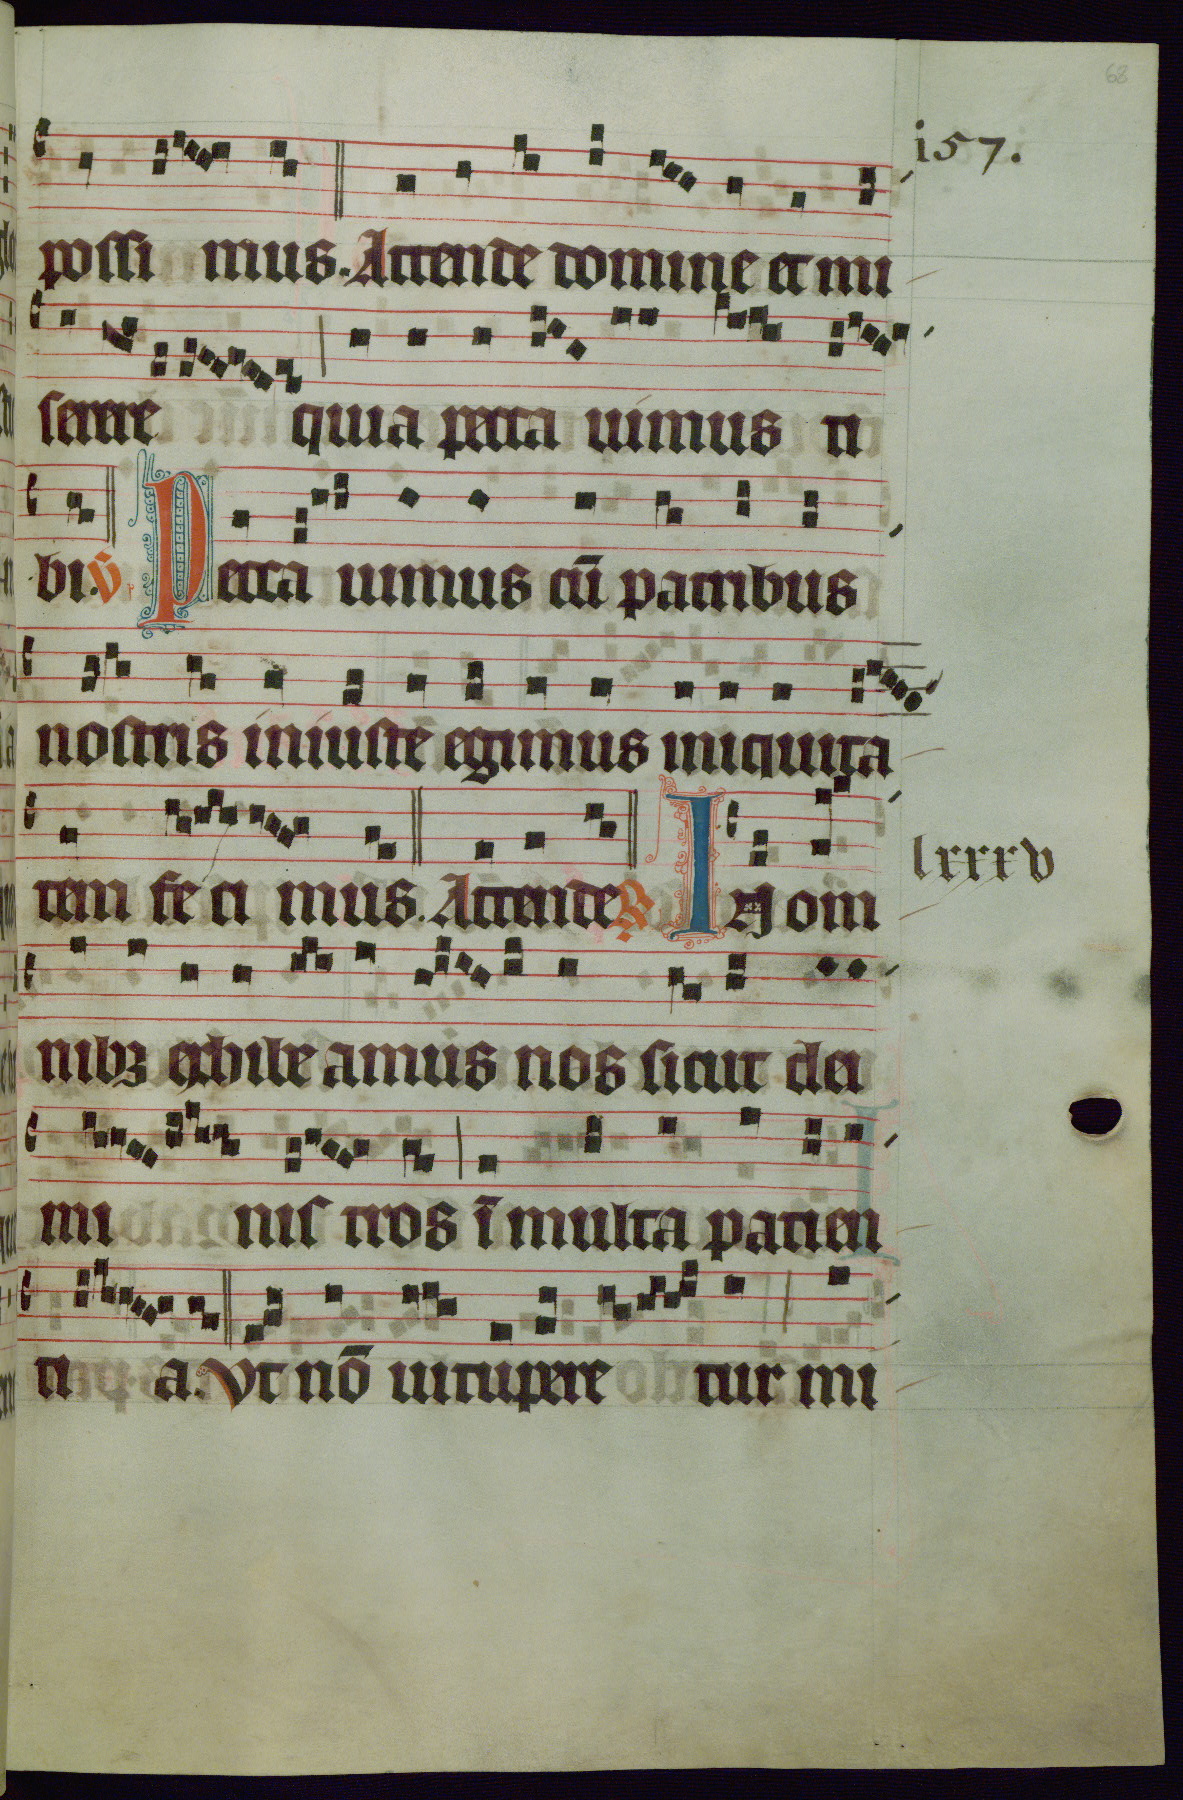 68
157.
possi mus. Attende domine et mi
serere quia pecca uimus ti
bi. V̄ Pecca uimus cū patribus
nostris iniuste egimus iniquita
tem fe ci mus. Attende R IN om̄
lxxxv
nibꝫ exhibe amus nos sicut dei
mi nis tros ī multa patien
ti a. Vt nō uitupere tur mi